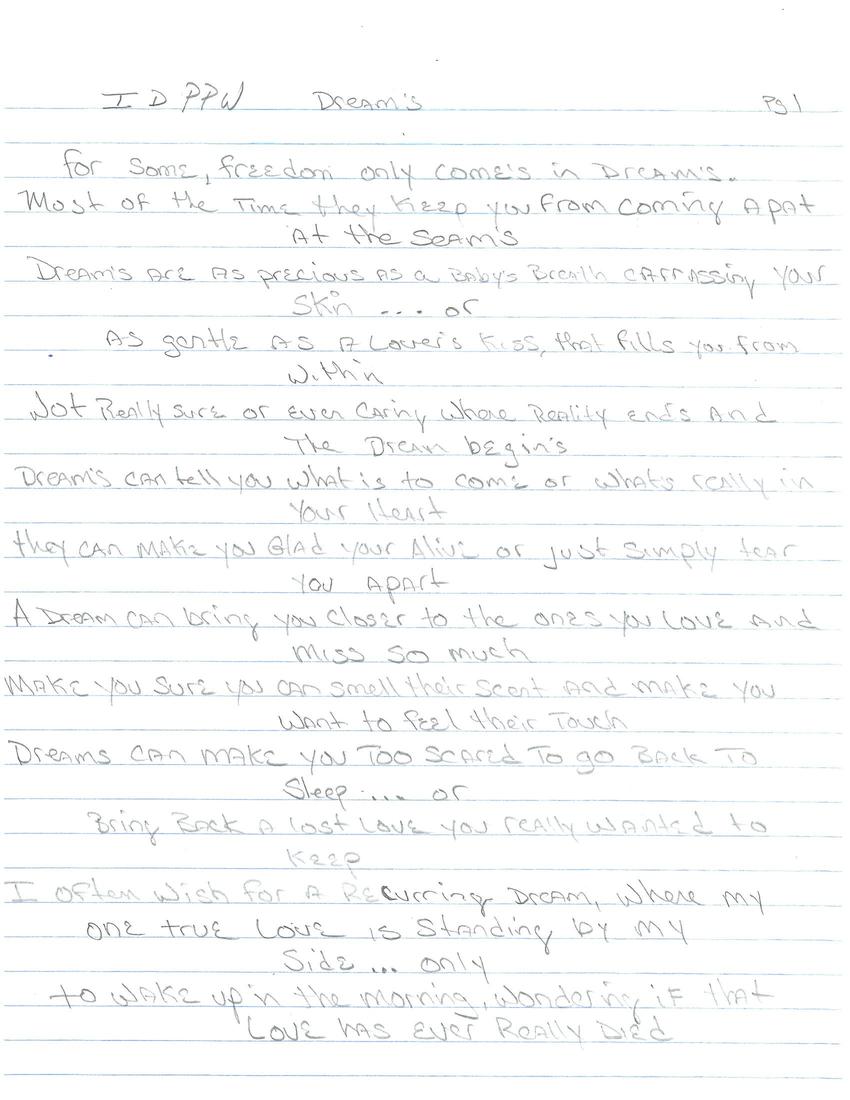 I D PPW Dream's Pg 1
for Some, freedom only come's in Dream's.
Most of the Time they Keep you from coming Apat
At the Seam's
Dream's Are As precious As a Baby's Breath carrassing your
Skin .... or
As gentle As A Lover's Kiss, that fills you from
Within
Not Really sure or even Caring Where Reality ends And
The Dream begin's
Dream's can tell you what is to come or what's really in
Your Heart
they can make you Glad your Alive or just simply tear
you Apart
A Dream can bring you Closer to the ones you Love And
miss so much
Make you sure you can smell their scent And make you
want to feel their Touch
Dreams can make you Too scared To go Back To
Sleep .... or
Bring Back A lost Love you really wanted to
Keep
I often wish for A Recurring Dream, where my
one true Love is Standing by my
Side ... only
to wake up in the morning, wondering if that
Love has ever Really Died